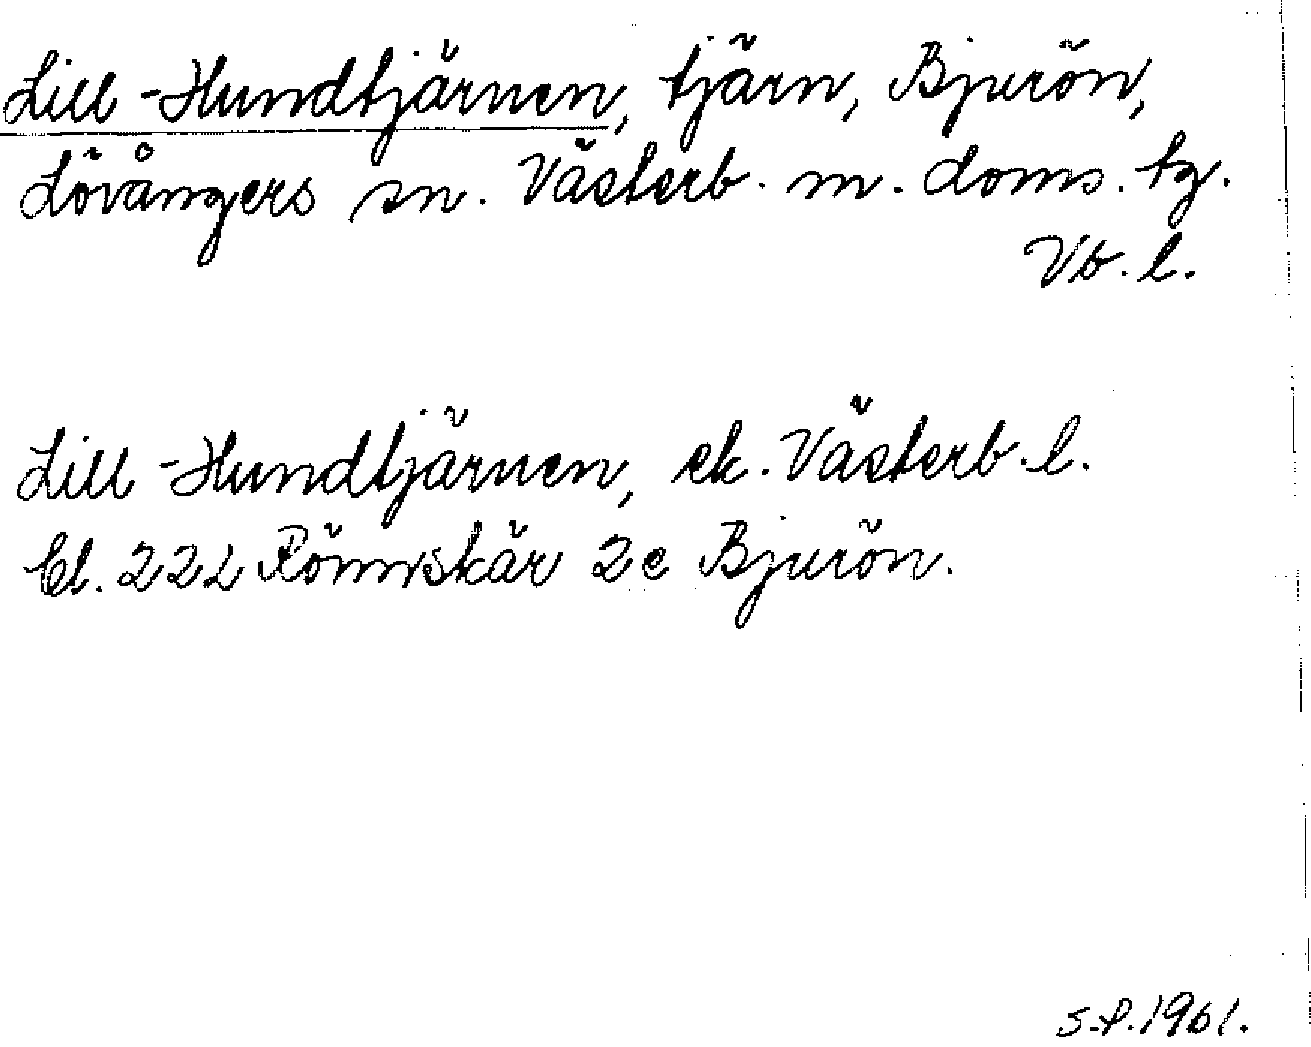 Lill-Hundtjärnen, tjärn, Bjurön,
Lövångers sn. Västerb. m. doms. tg.
Vb. l.
Lill-Hundtjärnen, ek. Västerb. l.
Bl. 222 Rönnskär 2 c Bjurön.
S.P. 1961.